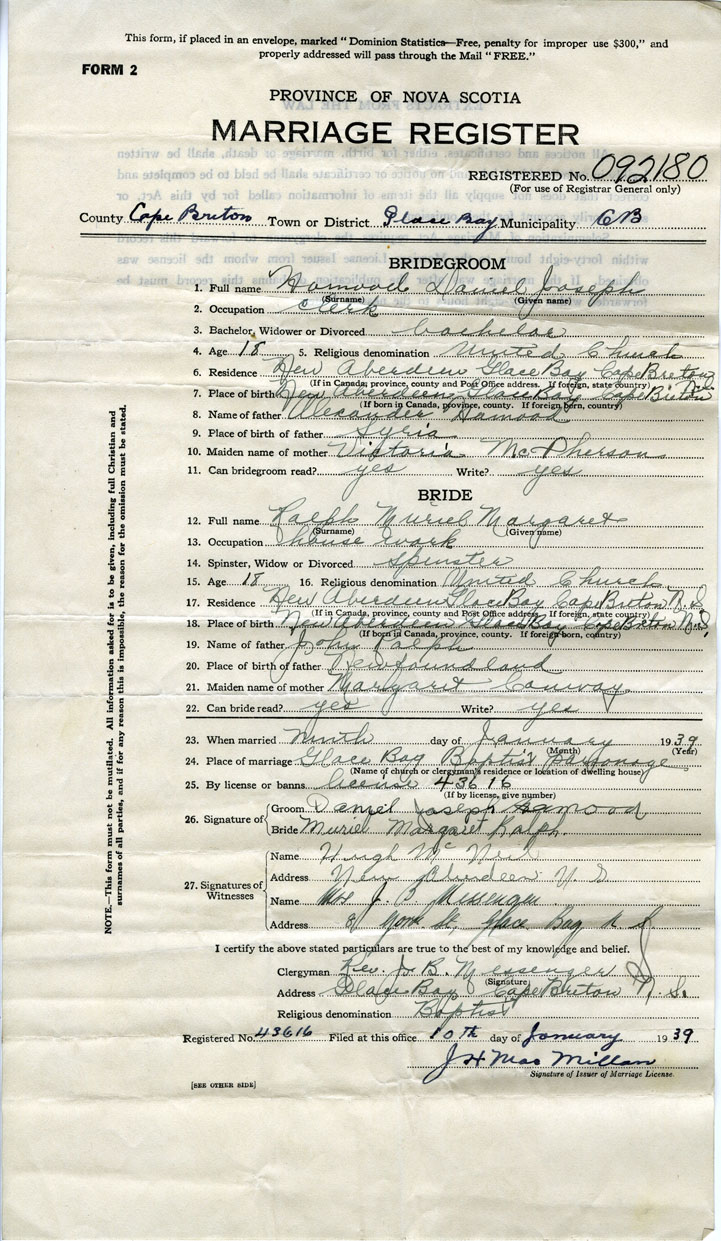 This form, if placed in an envelope, marked "Dominion Statistics—Free, penalty for improper use $300," and
properly addressed will pass through the Mail "FREE."
FORM 2
PROVINCE OF NOVA SCOTIA
MARRIAGE REGISTER
REGISTERED No. 092180
(For use of Registrar General only)
County Cape Breton Town or District Glace Bay Municipality CB
BRIDEGROOM
1. Full name Hamood Daniel Joseph
(Surname) (Given name)
2. Occupation Clerk
3. Bachelor, Widower or Divorced bachelor
4. Age 18 5. Religious denomination United Church
6. Residence New Aberdeen Glace Bay Cape Breton
(If in Canada, province, county and Post Office address. If foreign, state country)
7. Place of birth New Aberdeen Glace Bay Cape Breton
(If born in Canada, province, county. If foreign born, country)
8. Name of father Alexander Hamood
9. Place of birth of father Syria
10. Maiden name of mother Viktoria McPherson
11. Can bridegroom read? yes Write? yes
BRIDE
12. Full name Ralph Muriel Margaret
(Surname) (Given name)
13. Occupation house work
14. Spinster, Widow or Divorced Spinster
15. Age 18 16. Religious denomination United Church
17. Residence New Aberdeen Glace Bay Cape Breton N.S.
(If in Canada, province, county and Post Office address. If foreign, state country)
18. Place of birth New Aberdeen Glace Bay Cape Breton N.S.
(If born in Canada, province, county. If foreign born, country)
19. Name of father John Ralph
20. Place of birth of father Newfoundland
21. Maiden name of mother Margaret Conway
22. Can bride read? yes Write? yes
23. When married Ninth day of January 1939
(Month) (Year)
24. Place of marriage Glace Bay Baptist Parsonage
(Name of church or clergyman's residence or location of dwelling house)
25. By license or banns license 43616
(If by license, give number)
26. Signature of
Groom Daniel Joseph Hamood
Bride Muriel Margaret Ralph.
27. Signatures of Witnesses
Name Hugh McNeil
Address New Aberdeen N.S
Name Mrs J. B. Messenger.
Address York St, Glace Bay N S
I certify the above stated particulars are true to the best of my knowledge and belief.
Clergyman Rev. J. B. Messenger
(Signature)
Address Glace Bay Cape Breton N.S.
Religious denomination Baptist
Registered No. 43616 Filed at this office 10th day of January 1939
J H MacMillan
Signature of Issuer of Marriage License.
[SEE OTHER SIDE]
NOTE.—This form must not be mutilated. All information asked for is to be given, including full Christian and
surnames of all parties, and if for any reason this is impossible, the reason for the omission must be stated.